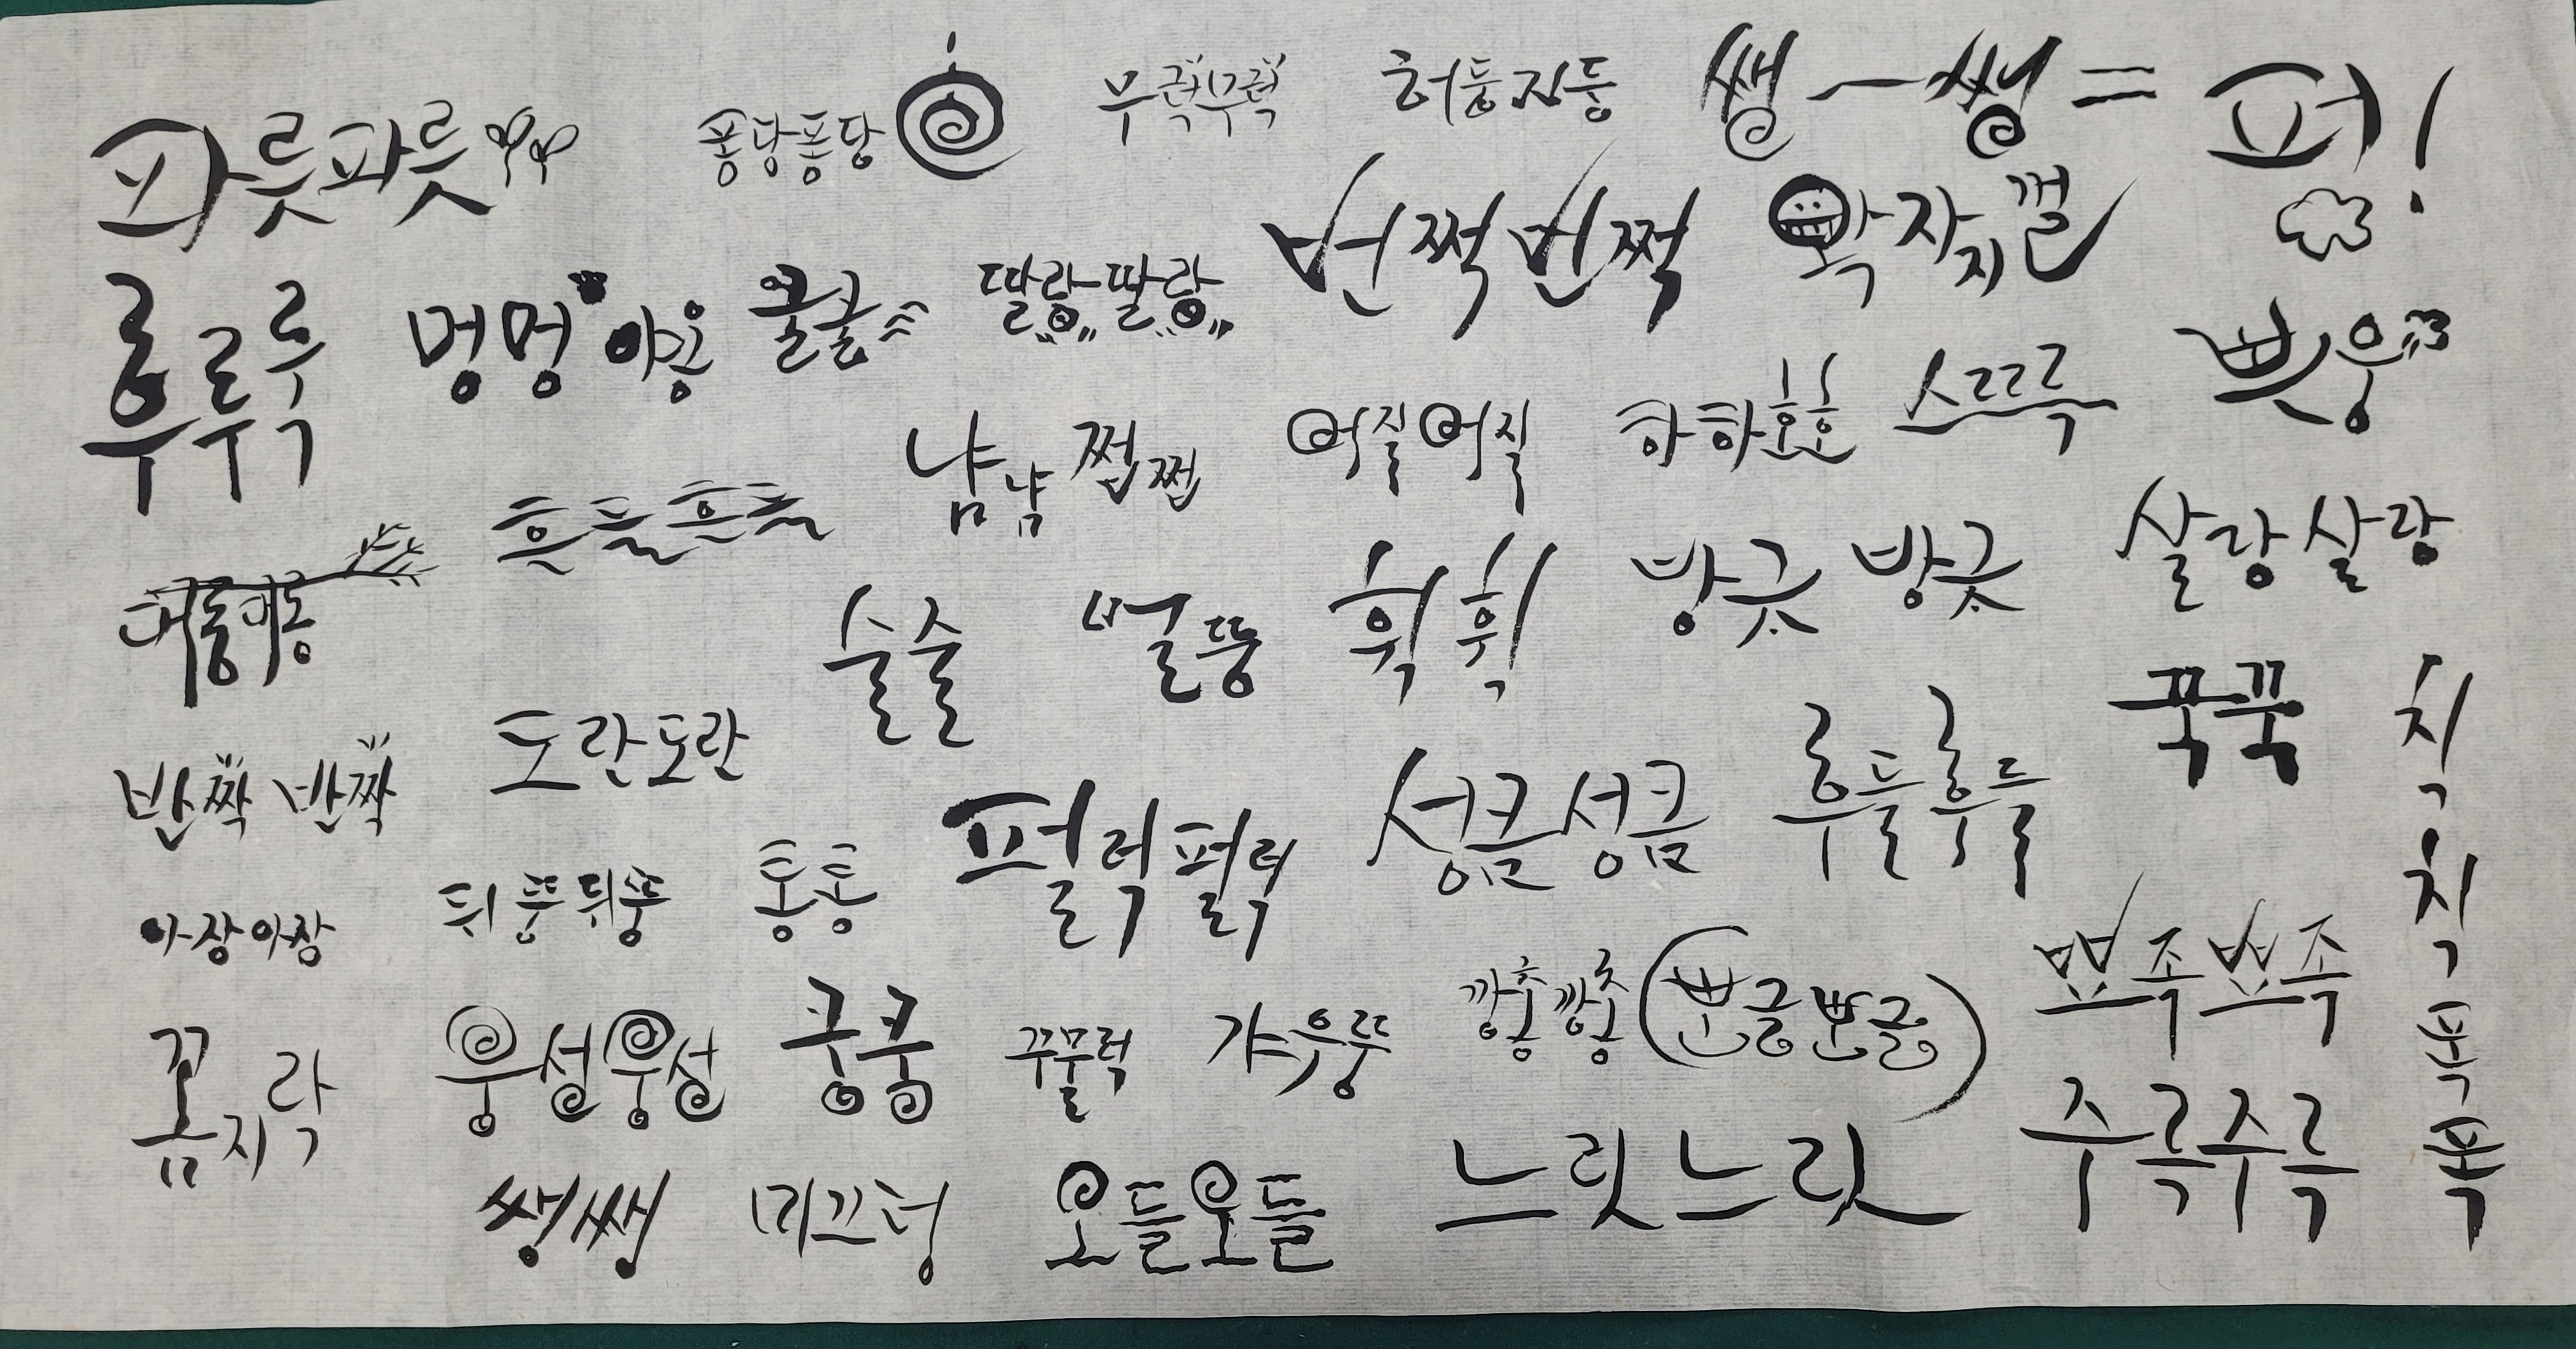 파릇파릇 퐁당퐁당 무럭무럭 허둥지둥 쌩-쌩= 펑!
후루룩 멍멍 야옹 쿨쿨 딸랑딸랑 번쩍번쩍 왁자지껄
흔들흔들 냠냠 쩝쩝 어질어질 하하호호 스르르륵 쁘웅
대롱대롱 술술 벌뚱 휙휙 방긋 방긋 살랑살랑
반짝 반짝 도란도란 펄럭펄럭 성큼성큼 후들후들 꾹꾹 칙칙폭폭
아장아장 뒤뚱뒤뚱 통통 깡충깡충 빤글빤글 뾰족뾰족
꼼지락 웅성웅성 쿵쿵 꾸물럭 갸우뚱 주륵주륵
쌩쌩 미끄덩 오들오들 느릿느릿